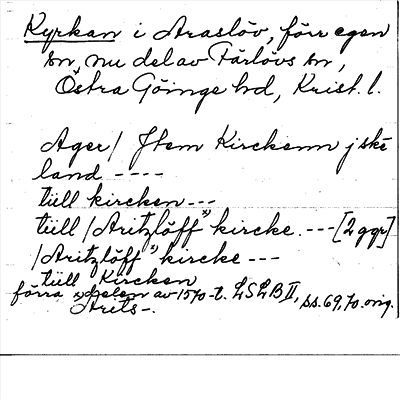 Kyrkan i Araslöv, förr egen
sn, nu del av Färlövs sn,
Östra Göinge hd, Krist. l.
Ager / Jtem Kirckenn j ske
land ----
tiill kircken ---
tiill / Aritzlöff x) kircke. --- [2 ggr]
/ Aritzlöff x) kircke ---
tiill Kircken
förra delen av 1570-t. LSLB II, ss. 69, 70. orig.
x) Arits-.